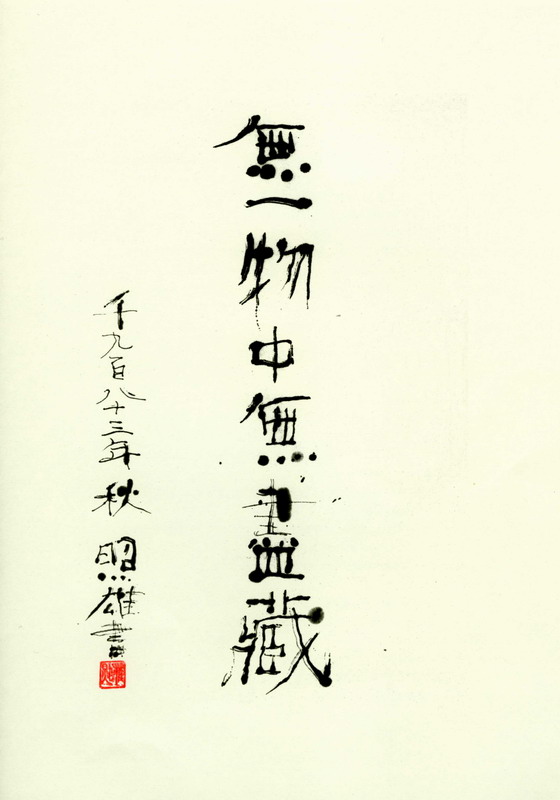 無一物中無盡藏
千九百八十三年 秋 照雄書